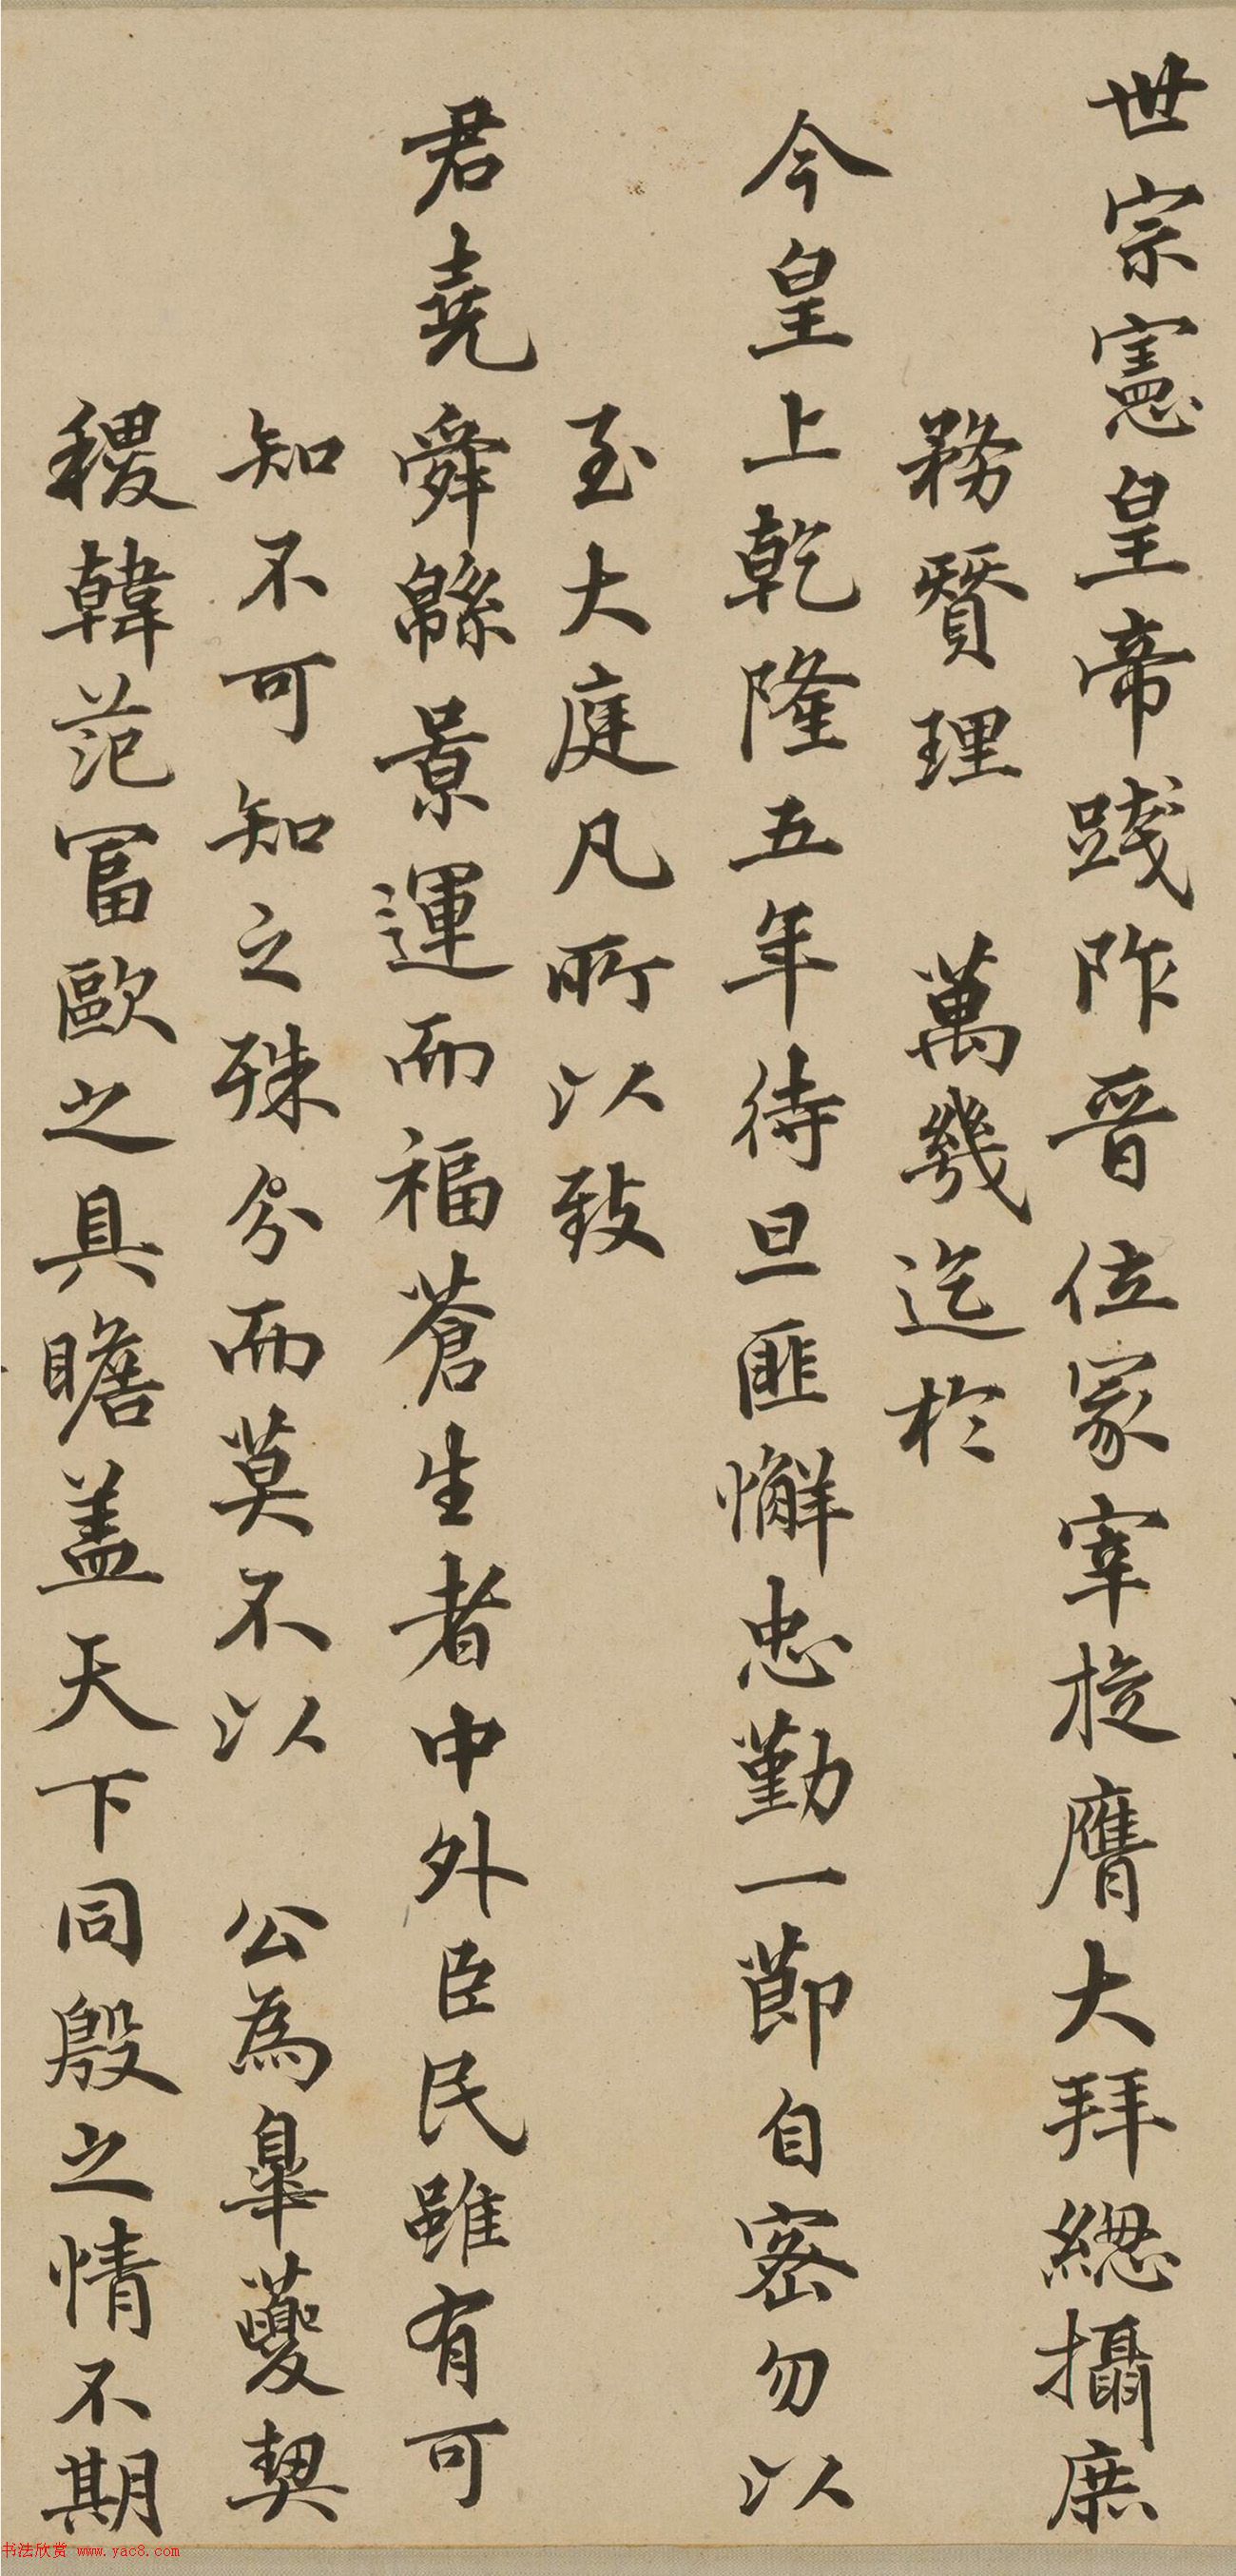 世宗憲皇帝踐阼晉位冢宰旋膺大拜總攝庶
務贊理　萬幾迄於
今皇上乾隆五年待旦匪懈忠勤一節自密勿以
至大庭凡所以致
君堯舜緜景運而福蒼生者中外臣民雖有可
知不可知之殊分而莫不以　公為皐夔契
稷韓范富歐之具瞻盖天下同殷之情不期
书法欣赏 www.yac8.com